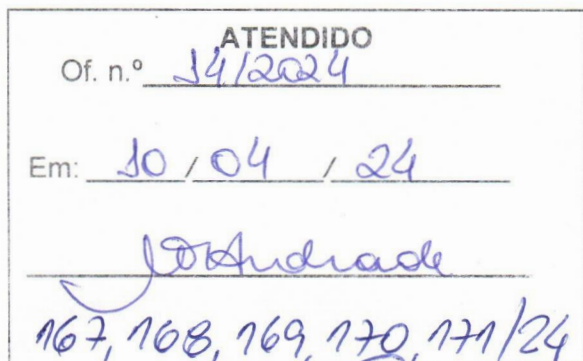 ATENDIDO
Of. n.º 14/2024
Em: 10 / 04 / 24
Andrade
167, 168, 169, 170, 171/24